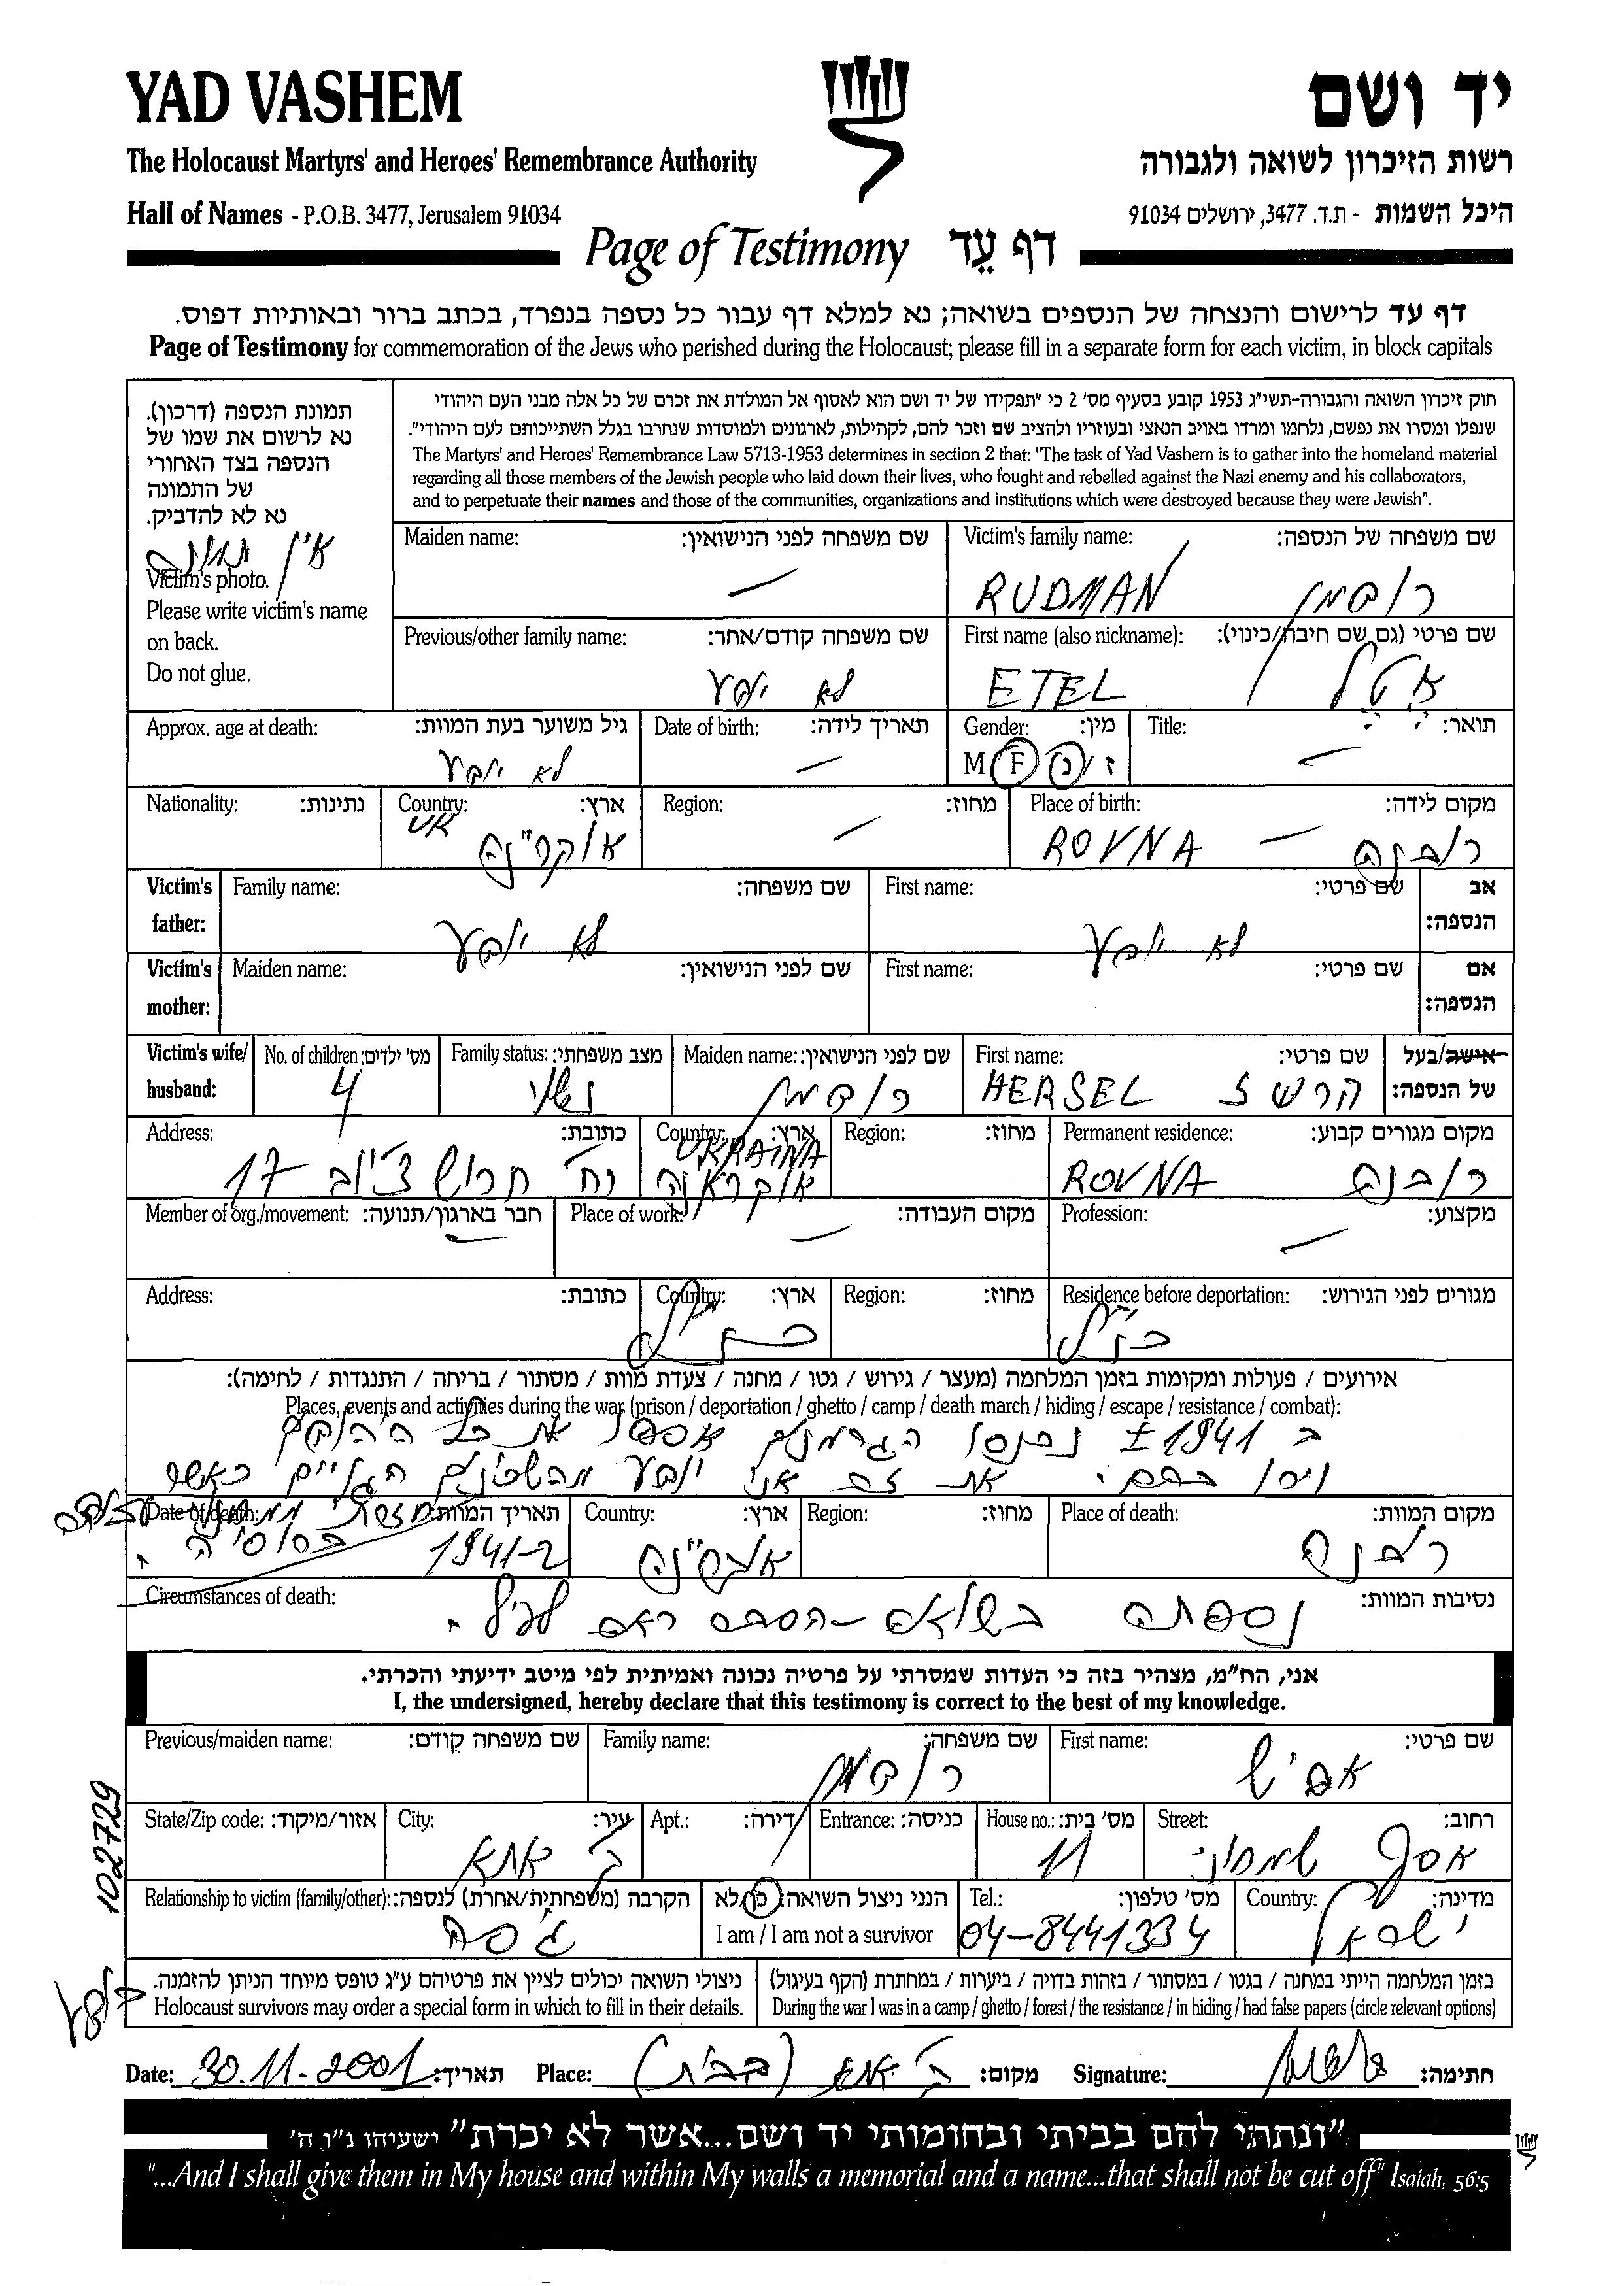 YAD VASHEM
יד ושם
The Holocaust Martyrs' and Heroes' Remembrance Authority
רשות הזיכרון לשואה ולגבורה
Hall of Names - P.O.B. 3477, Jerusalem 91034
היכל השמות - ת.ד. 3477, ירושלים 91034
Page of Testimony דף עֵד
דף עד לרישום והנצחה של הנספים בשואה; נא למלא דף עבור כל נספה בנפרד, בכתב ברור ובאותיות דפוס.
Page of Testimony for commemoration of the Jews who perished during the Holocaust; please fill in a separate form for each victim, in block capitals
תמונת הנספה (דרכון).
נא לרשום את שמו של
הנספה בצד האחורי
של התמונה
נא לא להדביק.
אין תמונה
Victim's photo.
Please write victim's name
on back.
Do not glue.
חוק זיכרון השואה והגבורה-תשי"ג 1953 קובע בסעיף מס' 2 כי "תפקידו של יד ושם הוא לאסוף אל המולדת את זכרם של כל אלה מבני העם היהודי
שנפלו ומסרו את נפשם, נלחמו ומרדו באויב הנאצי ובעוזריו ולהציב שם וזכר להם, לקהילות, לארגונים ולמוסדות שנחרבו בגלל השתייכותם לעם היהודי".
The Martyrs' and Heroes' Remembrance Law 5713-1953 determines in section 2 that: "The task of Yad Vashem is to gather into the homeland material
regarding all those members of the Jewish people who laid down their lives, who fought and rebelled against the Nazi enemy and his collaborators,
and to perpetuate their names and those of the communities, organizations and institutions which were destroyed because they were Jewish".
Maiden name: שם משפחה לפני הנישואין:
—
Victim's family name: שם משפחה של הנספה:
RUDMAN רודמן
Previous/other family name: שם משפחה קודם/אחר:
לא ידוע
First name (also nickname): שם פרטי (גם שם חיבה/כינוי):
ETEL אטל
Approx. age at death: גיל משוער בעת המוות:
לא ידוע
Date of birth: תאריך לידה:
—
Gender: מין:
M F ז / נ
Title: תואר:
—
Nationality: נתינות:
Country: ארץ:
UK אוקריינה
Region: מחוז:
—
Place of birth: מקום לידה:
ROVNA — רובנה
Victim's father: Family name: שם משפחה:
לא ידוע
First name: שם פרטי:
לא ידוע
אב הנספה:
Victim's mother: Maiden name: שם לפני הנישואין:
First name: שם פרטי:
אם הנספה:
Victim's wife/ husband:
No. of children: מס' ילדים:
4
Family status: מצב משפחתי:
נשוי
Maiden name: שם לפני הנישואין:
רודמן
First name: שם פרטי:
HERSEL הרשל
אישה/בעל של הנספה:
Address: כתובת:
17
Country: ארץ:
UKRAINA
Region: מחוז:
Permanent residence: מקום מגורים קבוע:
ROVNA רובנה
Member of org./movement: חבר בארגון/תנועה:
—
Place of work: מקום העבודה:
—
Profession: מקצוע:
—
Address: כתובת:
Country: ארץ:
Region: מחוז:
Residence before deportation: מגורים לפני הגירוש:
כנ"ל
אירועים / פעולות ומקומות בזמן המלחמה (מעצר / גירוש / גטו / מחנה / צעדת מוות / מסתור / בריחה / התנגדות / לחימה):
Places, events and activities during the war (prison / deportation / ghetto / camp / death march / hiding / escape / resistance / combat):
ב 1941 ± נכנסו הגרמנים אספו את כל היהודים
את זה אני יודע כאשר
Date of death: תאריך המוות:
1941-2
Country: ארץ:
Region: מחוז:
Place of death: מקום המוות:
רובנה
Circumstances of death: נסיבות המוות:
נספתה בשואה - הסבר ראה לעיל.
אני, הח"מ, מצהיר בזה כי העדות שמסרתי על פרטיה נכונה ואמיתית לפי מיטב ידיעתי והכרתי.
I, the undersigned, hereby declare that this testimony is correct to the best of my knowledge.
Previous/maiden name: שם משפחה קודם:
Family name: שם משפחה:
רודמן
First name: שם פרטי:
State/Zip code: אזור/מיקוד:
City: עיר:
ק. אתא
Apt.: דירה:
Entrance: כניסה:
House no.: מס' בית:
11
Street: רחוב:
אסף שמחוני
Relationship to victim (family/other): הקרבה (משפחתית/אחרת) לנספה:
גיסה
הנני ניצול השואה: כן/לא
I am / I am not a survivor
Tel.: מס' טלפון:
04-8441334
Country: מדינה:
ישראל
ניצולי השואה יכולים לציין את פרטיהם ע"ג טופס מיוחד הניתן להזמנה.
Holocaust survivors may order a special form in which to fill in their details.
בזמן המלחמה הייתי במחנה / בגטו / במסתור / בזהות בדויה / ביערות / במחתרת (הקף בעיגול)
During the war I was in a camp / ghetto / forest / the resistance / in hiding / had false papers (circle relevant options)
102729
Date: 30.11.2001 תאריך:
Place: ק. אתא (בבית) מקום:
Signature: חתימה:
"ונתתי להם בביתי ובחומותי יד ושם...אשר לא יכרת" ישעיהו נ"ו ה'
"...And I shall give them in My house and within My walls a memorial and a name...that shall not be cut off" Isaiah, 56:5